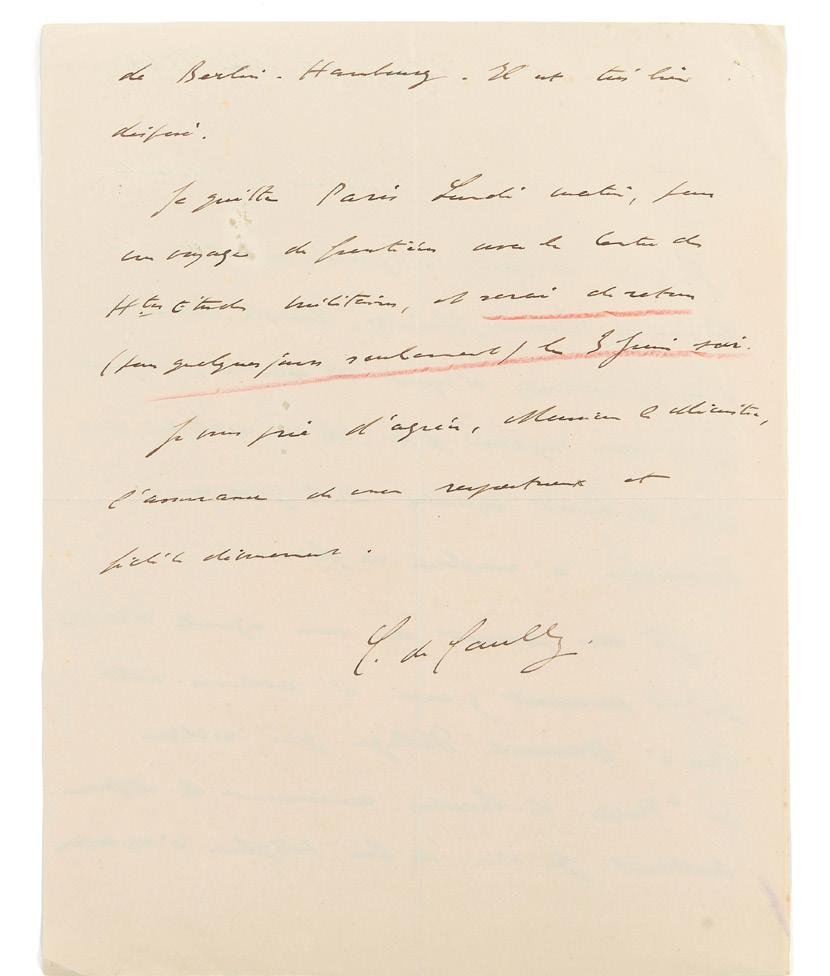 de Berlin - Hambourg. Il est très bien
disposé.
Je quitte Paris Lundi matin, pour
un voyage de frontières avec le Centre des
Htes Etudes militaires, et serai de retour
(pour quelques jours seulement) le 3 Juin soir.
Je vous prie d'agréer, Monsieur le Ministre,
l'assurance de mon respectueux et
fidèle dévouement.
C. de Gaulle.